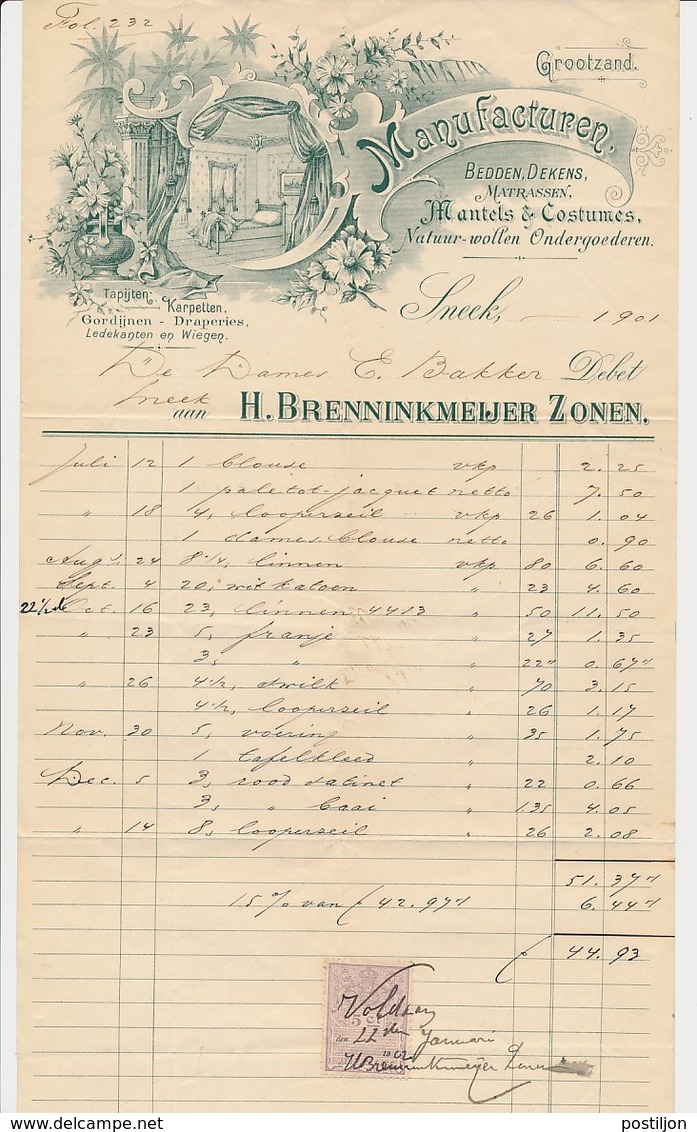 Fol. 232
Grootzand.
Manufacturen,
Bedden, Dekens,
Matrassen,
Mantels & Costumes,
Natuur-wollen Ondergoederen.
Tapijten, Karpetten,
Gordijnen - Draperies,
Ledekanten en Wiegen.
Sneek, 1901
De Dames E. Bakker Debet
Sneek
aan H. Brenninkmeijer Zonen.
Juli 12 1 blouse vkp 2.25
1 paletot-jacquet netto 7.50
" 18 4, looperzeil vkp 26 1.04
1 dames blouse netto 0.90
Aug. 24 8 1/4, linnen vkp 80 6.60
Sept. 4 20, wit katoen " 23 4.60
22 1/2 d Oct. 16 23, linnen 4413 " 50 11.50
" 23 5, franje " 27 1.35
3, " " 22" 0.67"
" 26 4 1/2, dwilk " 70 3.15
4 1/2, looperzeil " 26 1.17
Nov. 30 5, voering " 35 1.75
1 tafelkleed " 2.10
Dec. 5 3, rood satinet " 22 0.66
3, " baai " 135 4.05
" 14 8, looperzeil " 26 2.08
51.37"
15% van f 42.97" 6.44"
f 44.93
Voldaan
5 C
den 22 den Januari
1902
HBrenninkmeijer Zonen
delcampe.net
postiljon